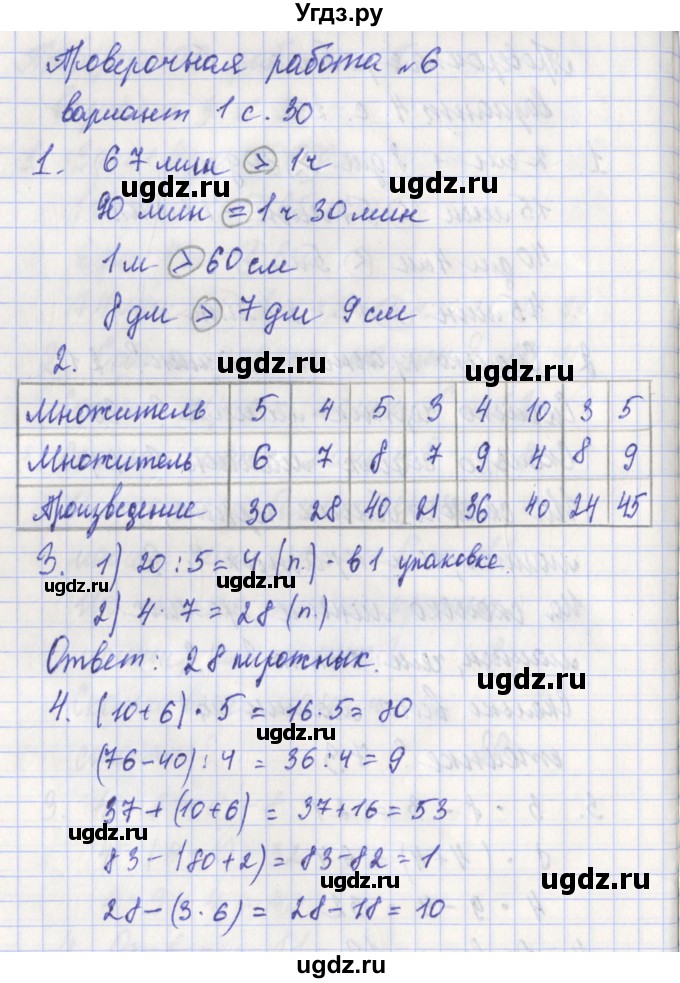 Угдз.ру
Проверочная работа №6
вариант 1 с. 30
1. 67 мин > 1ч
ugdz.ru ugdz.ru
90 мин = 1ч 30 мин
ugdz.ru
1м > 60см
8дм > 7дм 9см
ugdz.ru
2.
ugdz.ru
Множитель 5 4 5 3 4 10 3 5
ugdz.ru
Множитель 6 7 8 7 9 4 8 9
ugdz.ru
Произведение 30 28 40 21 36 40 24 45
3. 1) 20 : 5 = 4 (п.) - в 1 упаковке.
ugdz.ru ugdz.ru
2) 4 · 7 = 28 (п.)
ugdz.ru
Ответ: 28 пирожных.
ugdz.ru
4. (10+6) · 5 = 16·5 = 80
ugdz.ru
(76-40) : 4 = 36 : 4 = 9
37 + (10+6) = 37+16 = 53
ugdz.ru
83 - (80+2) = 83-82 = 1
ugdz.ru
28 - (3·6) = 28-18 = 10
ugdz.ru
ugdz.ru